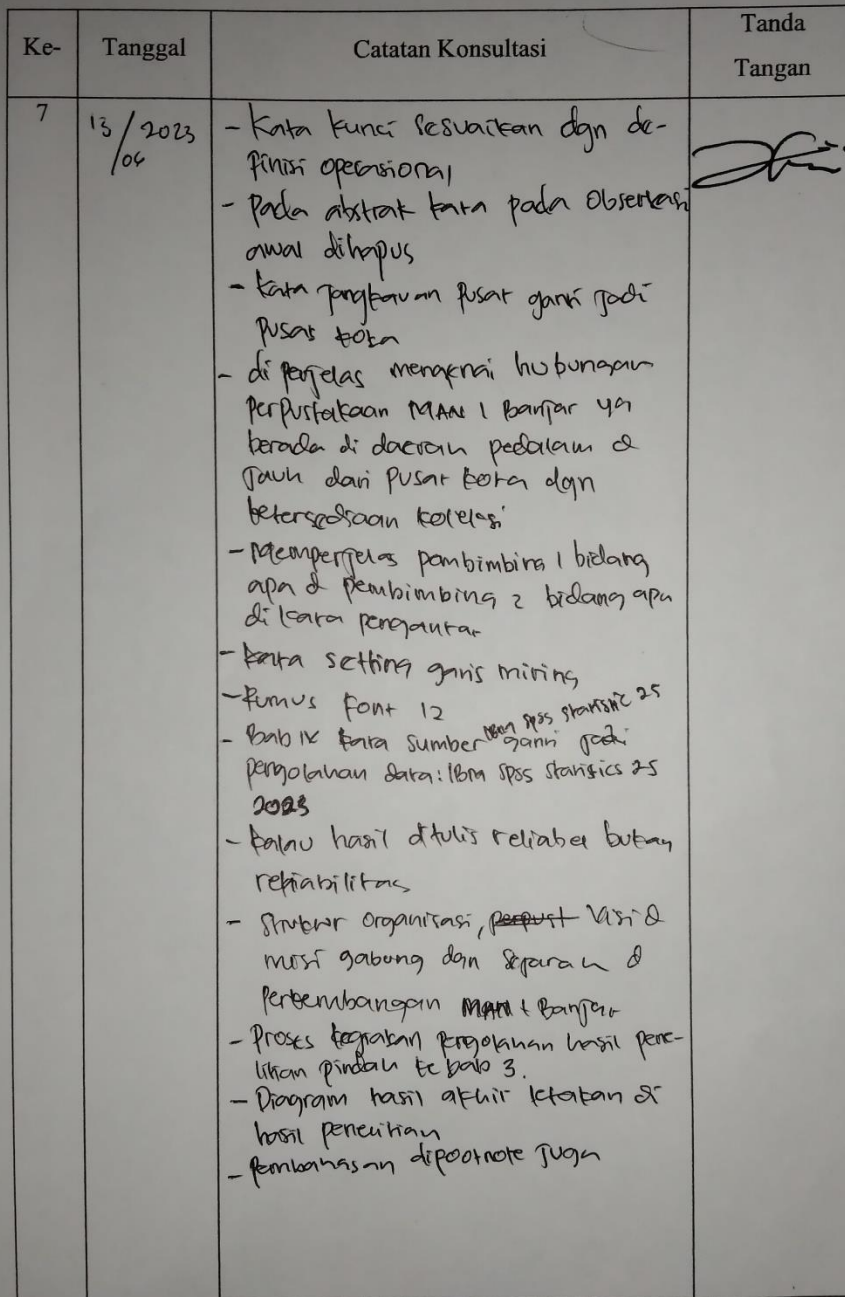 Ke-
Tanggal
Catatan Konsultasi
Tanda
Tangan
7
13/2023
/04
- Kata kunci sesuaikan dgn de-
finisi operasional
- Pada abstrak kata pada Observasi
awal dihapus
- kata jangkauan pusat ganti jadi
pusat kota
- di perjelas mengenai hubungan
Perpustakaan MAN 1 Banjar yg
berada di daerah pedalam &
jauh dari pusat kota dgn
ketersediaan koleksi
- Memperjelas pembimbing 1 bidang
apa & pembimbing 2 bidang apa
di kata pengantar
- kata setting garis miring
- Rumus font 12
- Bab IV kata sumber IBM spss statistic 25 ganti jadi
pengolahan data: IBM SPSS Statistics 25
2023
- kalau hasil ditulis reliabel bukan
reliabilitas
- Struktur organisasi, perpust Visi &
misi gabung dgn Sejarah &
Perkembangan MAN 1 Banjar
- Proses kegiatan pengolahan hasil pene-
litian pindah ke bab 3.
- Diagram hasil akhir letakan di
hasil penelitian
- Pembahasan difootnote juga